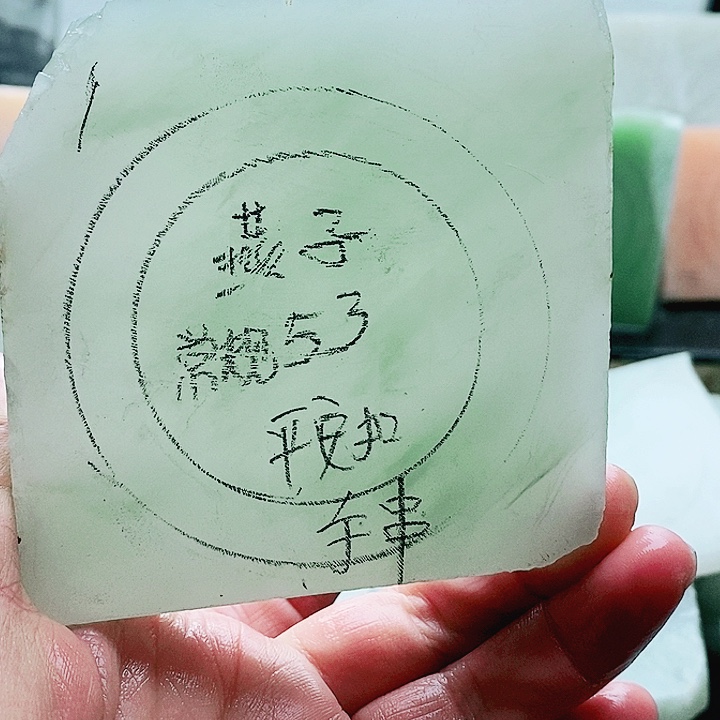 子
常规53
平安扣
手串